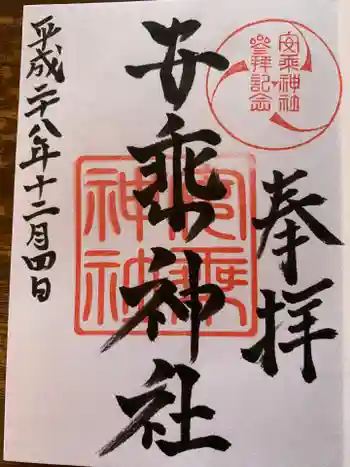 奉拝
安乗神社
参拝記念
安乗神社
安乗
神社
平成二十八年十二月四日